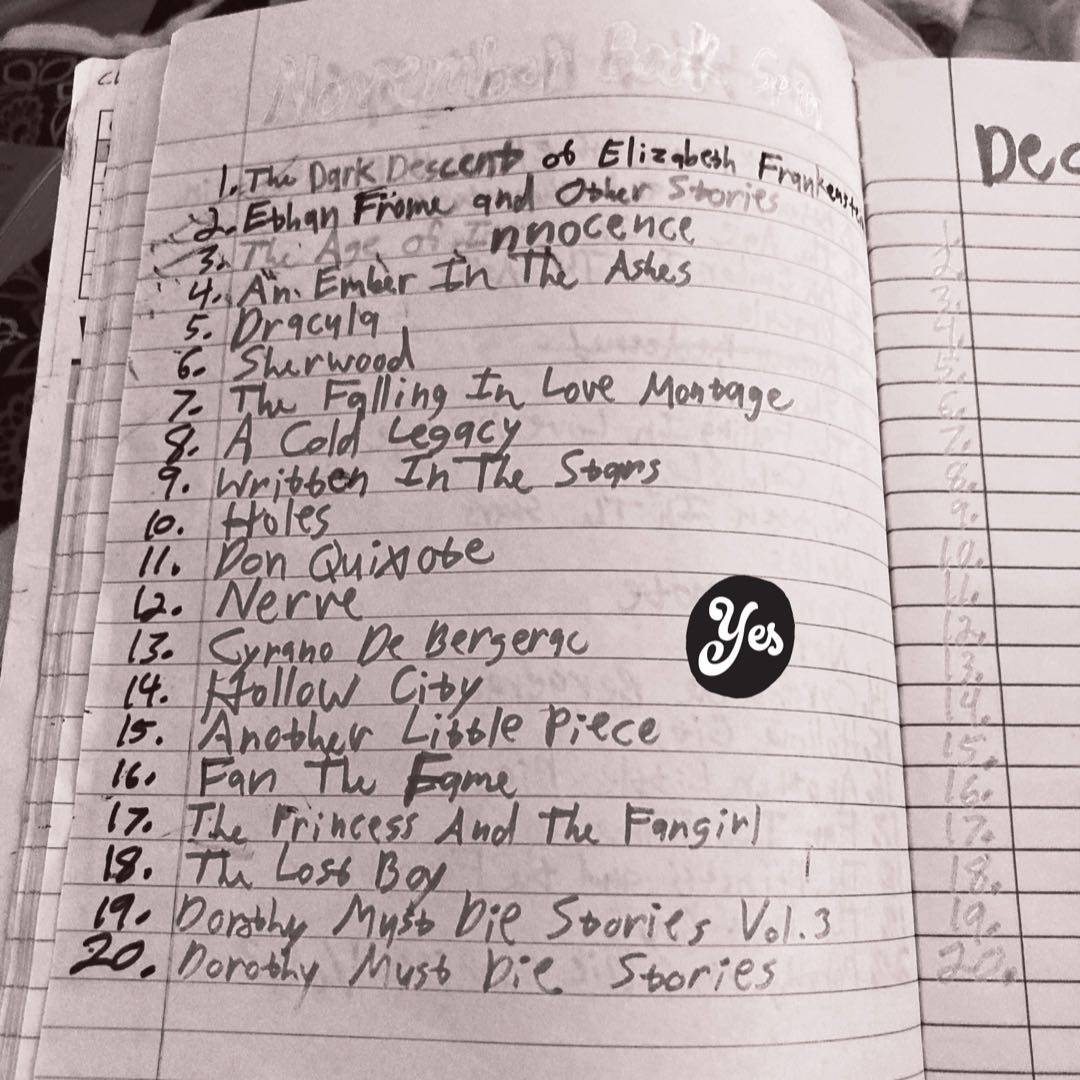 November Book
1. The Dark Descent of Elizabeth Frankenstein
2. Ethan Frome and Other Stories
3. The Age of Innocence
4. An Ember In The Ashes
5. Dracula
6. Sherwood
7. The Falling In Love Montage
8. A Cold Legacy
9. Written In The Stars
10. Holes
11. Don Quixote
12. Nerve
Yes
13. Cyrano De Bergerac
14. Hollow City
15. Another Little Piece
16. Fan The Fame
17. The Princess And The Fangirl
18. The Lost Boy
19. Dorothy Must Die Stories Vol. 3
20. Dorothy Must Die Stories
Dec
1.
2.
3.
4.
5.
6.
7.
8.
9.
10.
11.
12.
13.
14.
15.
16.
17.
18.
19.
20.